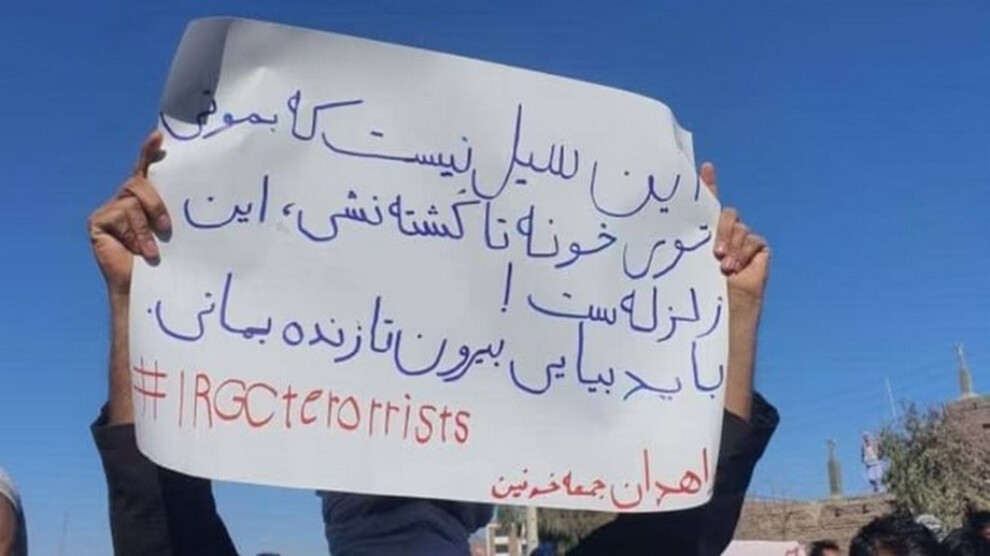 این سیل نیست که بمونی
توی خونه تا کشته نشی، این
زلزله ست !
باید بیایی بیرون تا زنده بمانی.
#IRGCterorrists
اهدان جمعه خونین